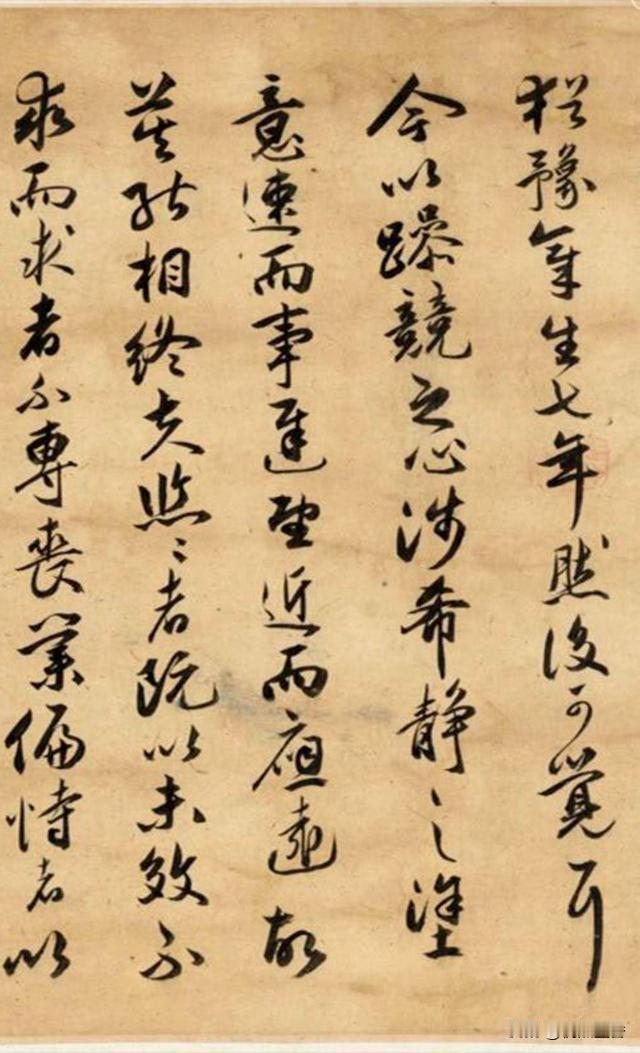 猶豫章生七年然後可覺耳
今以躁競之心涉希靜之塗
意速而事遲望近而應遠故
莫能相終夫悠〻者既以未效不
求而求者以不專喪業偏恃者以